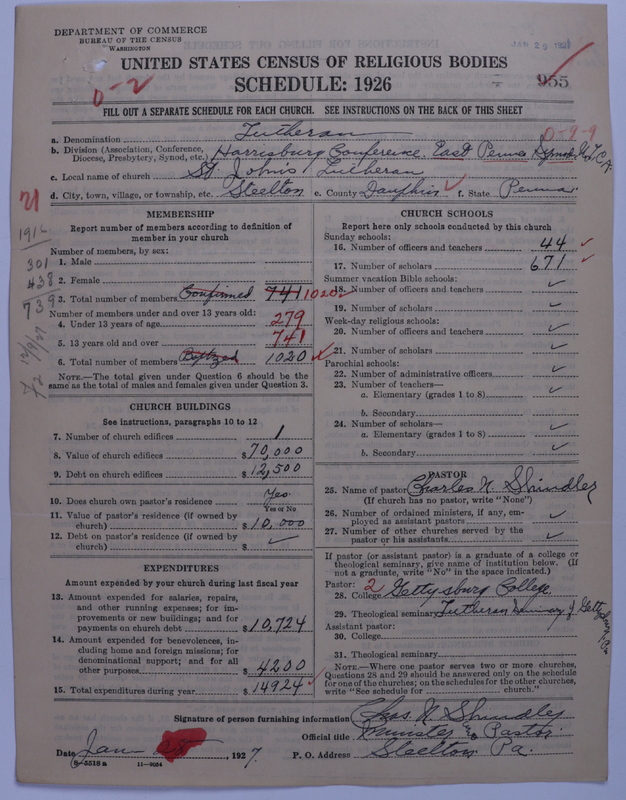 DEPARTMENT OF COMMERCE
BUREAU OF THE CENSUS
WASHINGTON
JAN 29 1927
UNITED STATES CENSUS OF RELIGIOUS BODIES
SCHEDULE: 1926
955
0-2
FILL OUT A SEPARATE SCHEDULE FOR EACH CHURCH. SEE INSTRUCTIONS ON THE BACK OF THIS SHEET
a. Denomination Lutheran
0-2-9
b. Division (Association, Conference, Diocese, Presbytery, Synod, etc.) Harrisburg Conference. East Penna Synod U.L.C.A.
c. Local name of church St. John's Lutheran
d. City, town, village, or township, etc. Steelton e. County Dauphin f. State Penna.
21
1916
301
438
739
MEMBERSHIP
Report number of members according to definition of
member in your church
Number of members, by sex:
1. Male
2. Female
3. Total number of members Confirmed 741 1020
Number of members under and over 13 years old:
4. Under 13 years of age 279
5. 13 years old and over 741
6. Total number of members Baptized 1020
NOTE.—The total given under Question 6 should be the
same as the total of males and females given under Question 3.
CHURCH BUILDINGS
See instructions, paragraphs 10 to 12
7. Number of church edifices 1
8. Value of church edifices $70,000
9. Debt on church edifices $12,500
10. Does church own pastor's residence Yes
Yes or No
11. Value of pastor's residence (if owned by
church) $10,000
12. Debt on pastor's residence (if owned by
church) $
EXPENDITURES
Amount expended by your church during last fiscal year
13. Amount expended for salaries, repairs,
and other running expenses; for im-
provements or new buildings; and for
payments on church debt $10,724
14. Amount expended for benevolences, in-
cluding home and foreign missions; for
denominational support; and for all
other purposes $4200
15. Total expenditures during year $14924
CHURCH SCHOOLS
Report here only schools conducted by this church
Sunday schools:
16. Number of officers and teachers 44
17. Number of scholars 671
Summer vacation Bible schools:
18. Number of officers and teachers
19. Number of scholars
Week-day religious schools:
20. Number of officers and teachers
21. Number of scholars
Parochial schools:
22. Number of administrative officers
23. Number of teachers—
a. Elementary (grades 1 to 8)
b. Secondary
24. Number of scholars—
a. Elementary (grades 1 to 8)
b. Secondary
PASTOR
25. Name of pastor Charles N. Shindler
(If church has no pastor, write "None")
26. Number of ordained ministers, if any, em-
ployed as assistant pastors
27. Number of other churches served by the
pastor or his assistants
If pastor (or assistant pastor) is a graduate of a college or
theological seminary, give name of institution below. (If
not a graduate, write "No" in the space indicated.)
Pastor: 2
28. College Gettysburg College.
29. Theological seminary Lutheran Seminary of Gettysburg, Pa
Assistant pastor:
30. College
31. Theological seminary
NOTE.—Where one pastor serves two or more churches,
Questions 28 and 29 should be answered only on the schedule
for one of the churches; on the schedules for the other churches,
write "See schedule for church."
Signature of person furnishing information Chas. N. Shindler
Official title Minister & Pastor
Date Jan 1927. P. O. Address Steelton Pa.
8-5518 a 11-9084